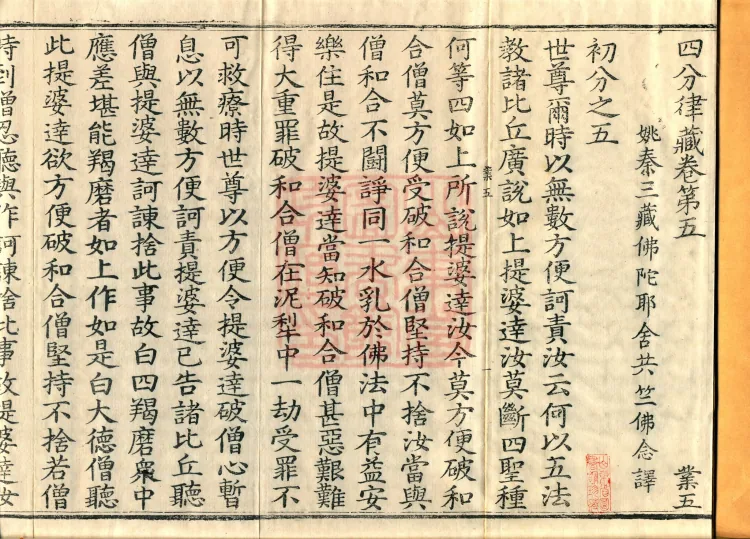 四分律藏卷第五 業五
姚秦三藏佛陀耶舍共竺佛念譯
初分之五
世尊爾時以無數方便訶責汝云何以五法
教諸比丘廣說如上提婆達汝莫斷四聖種
業五
何等四如上所說提婆達汝今莫方便破和
合僧莫方便受破和合僧堅持不捨汝當與
僧和合不鬬諍同一水乳於佛法中有益安
樂住是故提婆達當知破和合僧甚惡艱難
得大重罪破和合僧在泥犁中一劫受罪不
可救療時世尊以方便令提婆達破僧心暫
息以無數方便訶責提婆達已告諸比丘聽
僧與提婆達訶諫捨此事故白四羯磨衆中
應差堪能羯磨者如上作如是白大德僧聽
此提婆達欲方便破和合僧堅持不捨若僧
時到僧忍聽與作訶諫捨此事故提婆達汝